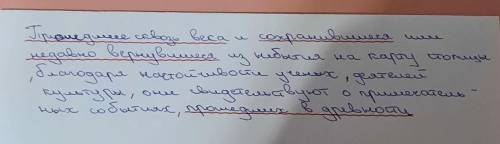 Прошедшие сквозь веса и сохранившиеся или
недавно вернувшиеся из небытия на карту столицы
, благодаря настойчивости ученых, деятелей
культуры, они свидетельствуют о примечатель-
ных событиях, прошедших в древности